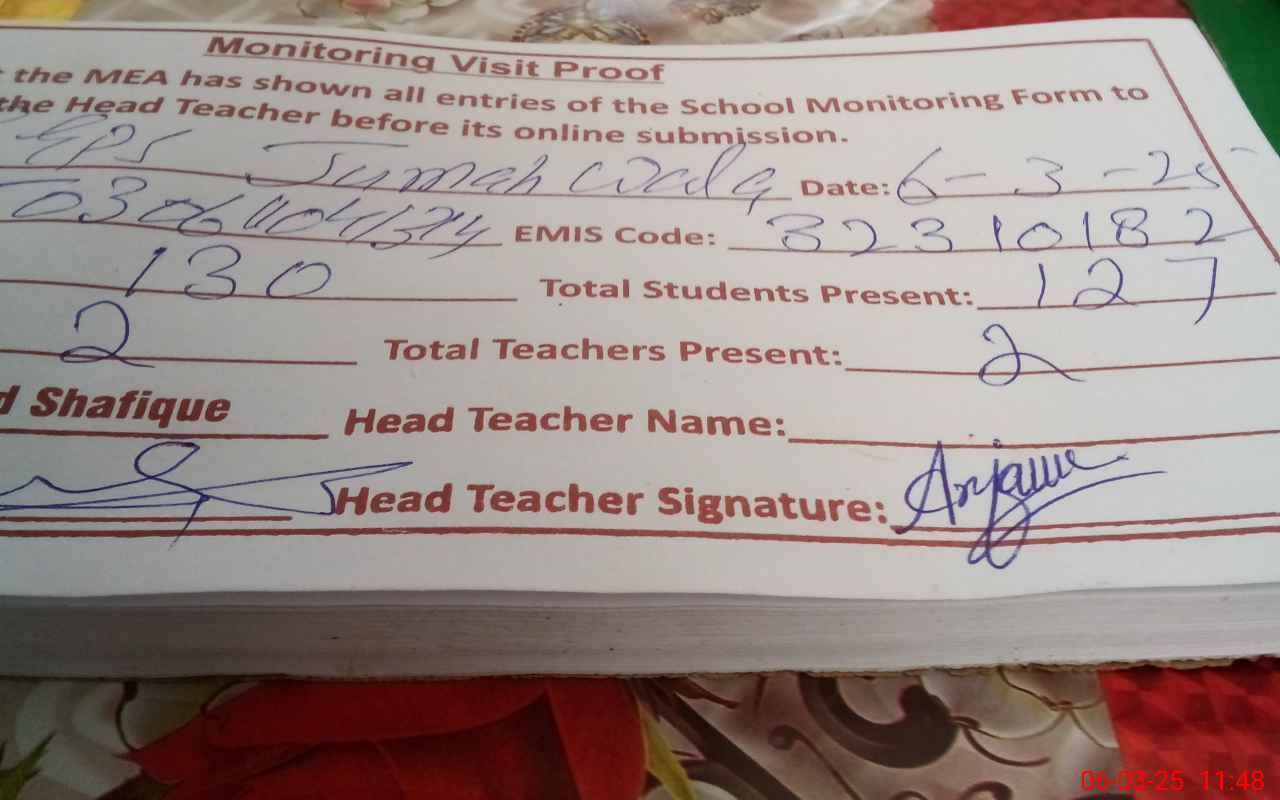 Monitoring Visit Proof
the MEA has shown all entries of the School Monitoring Form to
the Head Teacher before its online submission.
GPS Jumah Wala Date: 6-3-25
EMIS Code: 32310182
130 Total Students Present: 127
2 Total Teachers Present: 2
d Shafique Head Teacher Name:
Head Teacher Signature:
06-03-25 11:48